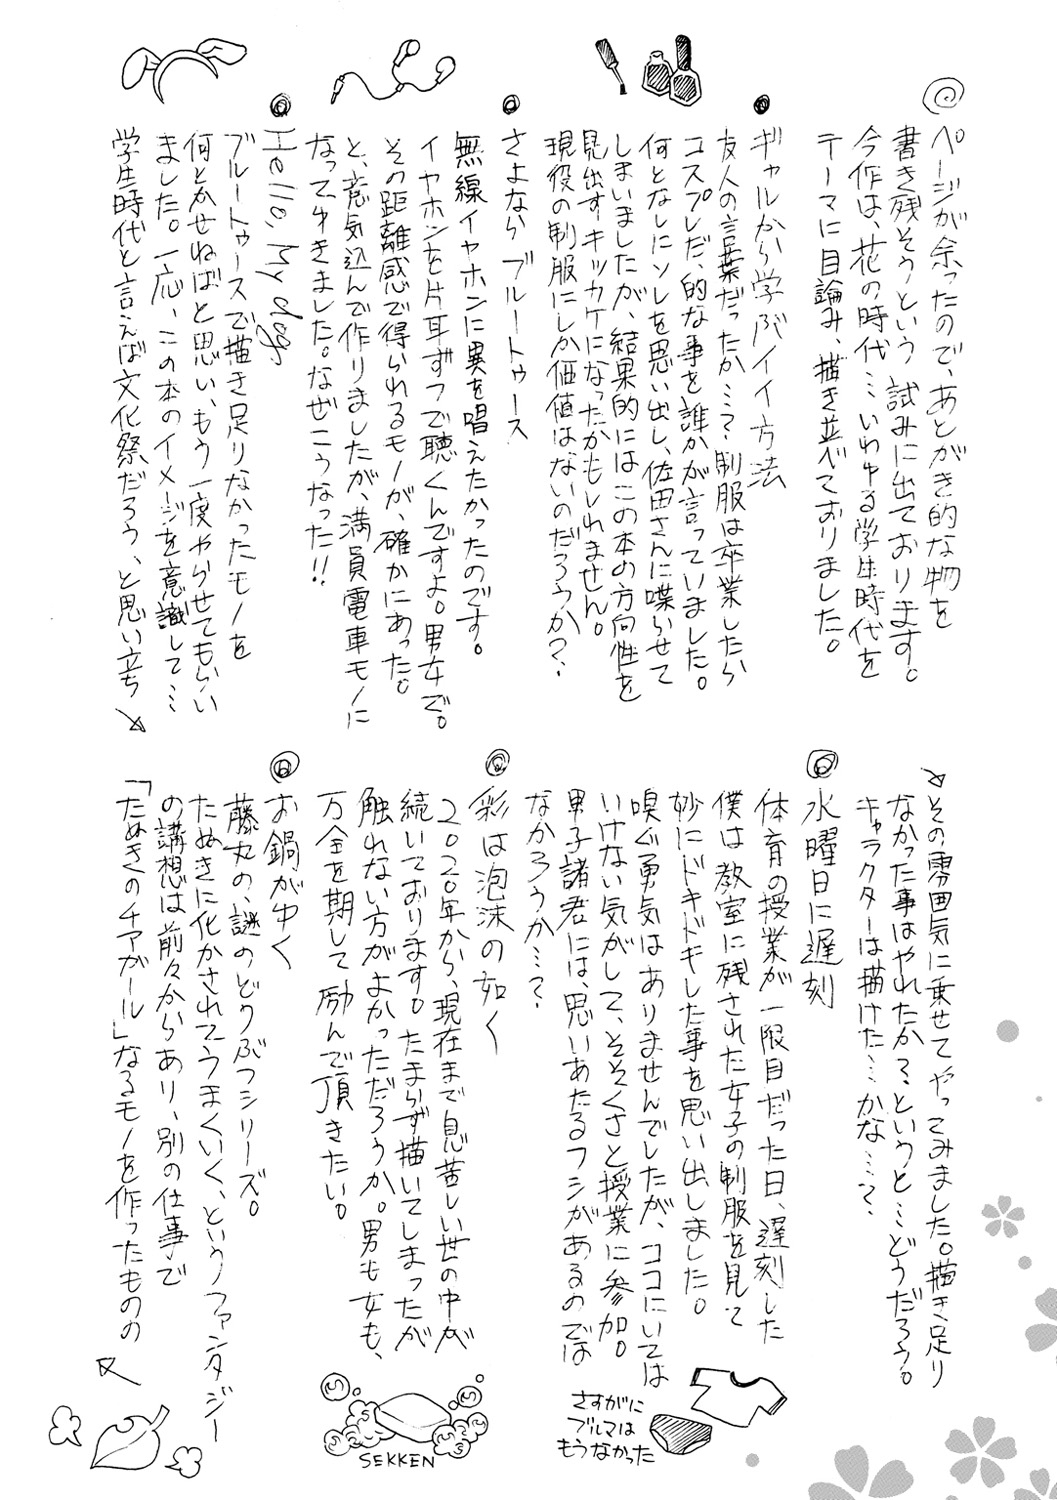 ページが余ったので、あとがき的な物を
書き残そうという試みに出ております。
今作は、花の時代…いわゆる学生時代を
テーマに目論み、描き並べておりました。
ギャルから学ぶイイ方法
友人の言葉だったか…?制服は卒業したら
コスプレだ、的な事を誰かが言っていました。
何となしにソレを思い出し、佐田さんに喋らせて
しまいましたが、結果的にはこの本の方向性を
見出すキッカケになったかもしれません。
現役の制服にしか価値はないのだろうか?
さよならブルートゥース
無線イヤホンに異を唱えたかったのです。
イヤホンを片耳ずつで聴くんですよ。男女で。
その距離感で得られるモノが、確かにあった。
と、意気込んで作りましたが、満員電車モノに
なってゆきました。なぜこうなった!!
Hello, My dog
ブルートゥースで描き足りなかったモノを
何とかせねばと思い、もう一度やらせてもらい
ました。一応、この本のイメージを意識して…
学生時代と言えば文化祭だろう、と思い立ち
その雰囲気に乗せてやってみました。描き足り
なかった事はやれたかな、というと…どうだろう。
キャラクターは描けた…かな…?
水曜日に遅刻
体育の授業が一限目だった日、遅刻した
僕は教室に残された女子の制服を見て
妙にドキドキした事を思い出しました。
嗅ぐ勇気はありませんでしたが、ココにいては
いけない気がして、そそくさと授業に参加。
男子諸君には、思いあたるフシがあるのでは
なかろうか…?
さすがに
ブルマは
もうなかった
彩は泡沫の如く
2020年から、現在まで息苦しい世の中が
続いております。たまらず描いてしまったが
触れない方がよかっただろうか。男も女も、
万全を期して励んで頂きたい。
SEKKEN
お鍋がゆく
藤丸の、謎のどうぶつシリーズ。
たぬきに化かされてうまくいく、というファンタジー
の講想は前々からあり、別の仕事で
「たぬきのチアガール」なるモノを作ったものの